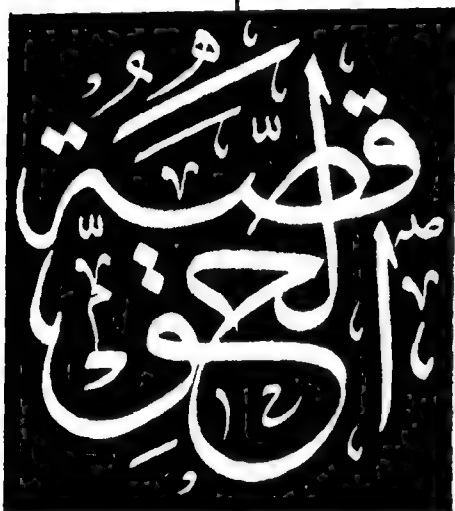 قصّة
الحقّ